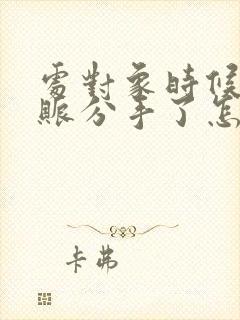 處對象時候
賬分手了怎
卡弗